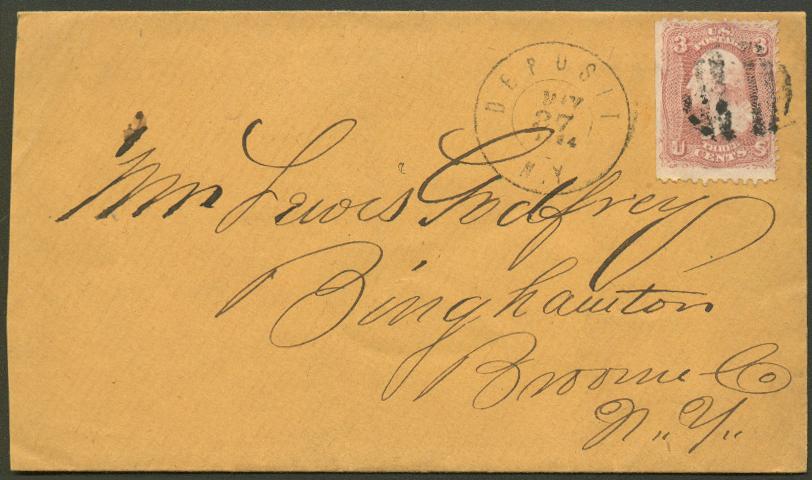 DEPOSIT
MAY
27
N.Y.
3 U.S. 3
POSTAGE
U THREE S
CENTS
Mr Lewis Godfrey
Binghamton
Broome Co
N.Y.